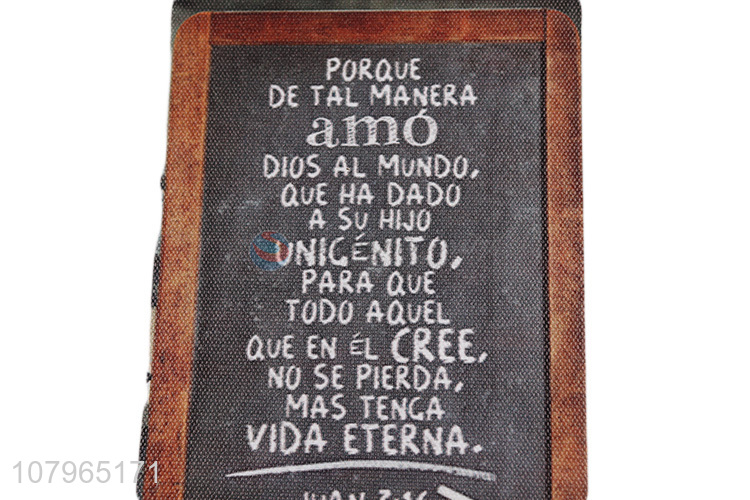 PORQUE
DE TAL MANERA
amó
DIOS AL MUNDO,
QUE HA DADO
A SU HIJO
UNIGÉNITO,
PARA QUE
TODO AQUEL
QUE EN ÉL CREE,
NO SE PIERDA,
MAS TENGA
VIDA ETERNA.
JUAN 3:16
107965171